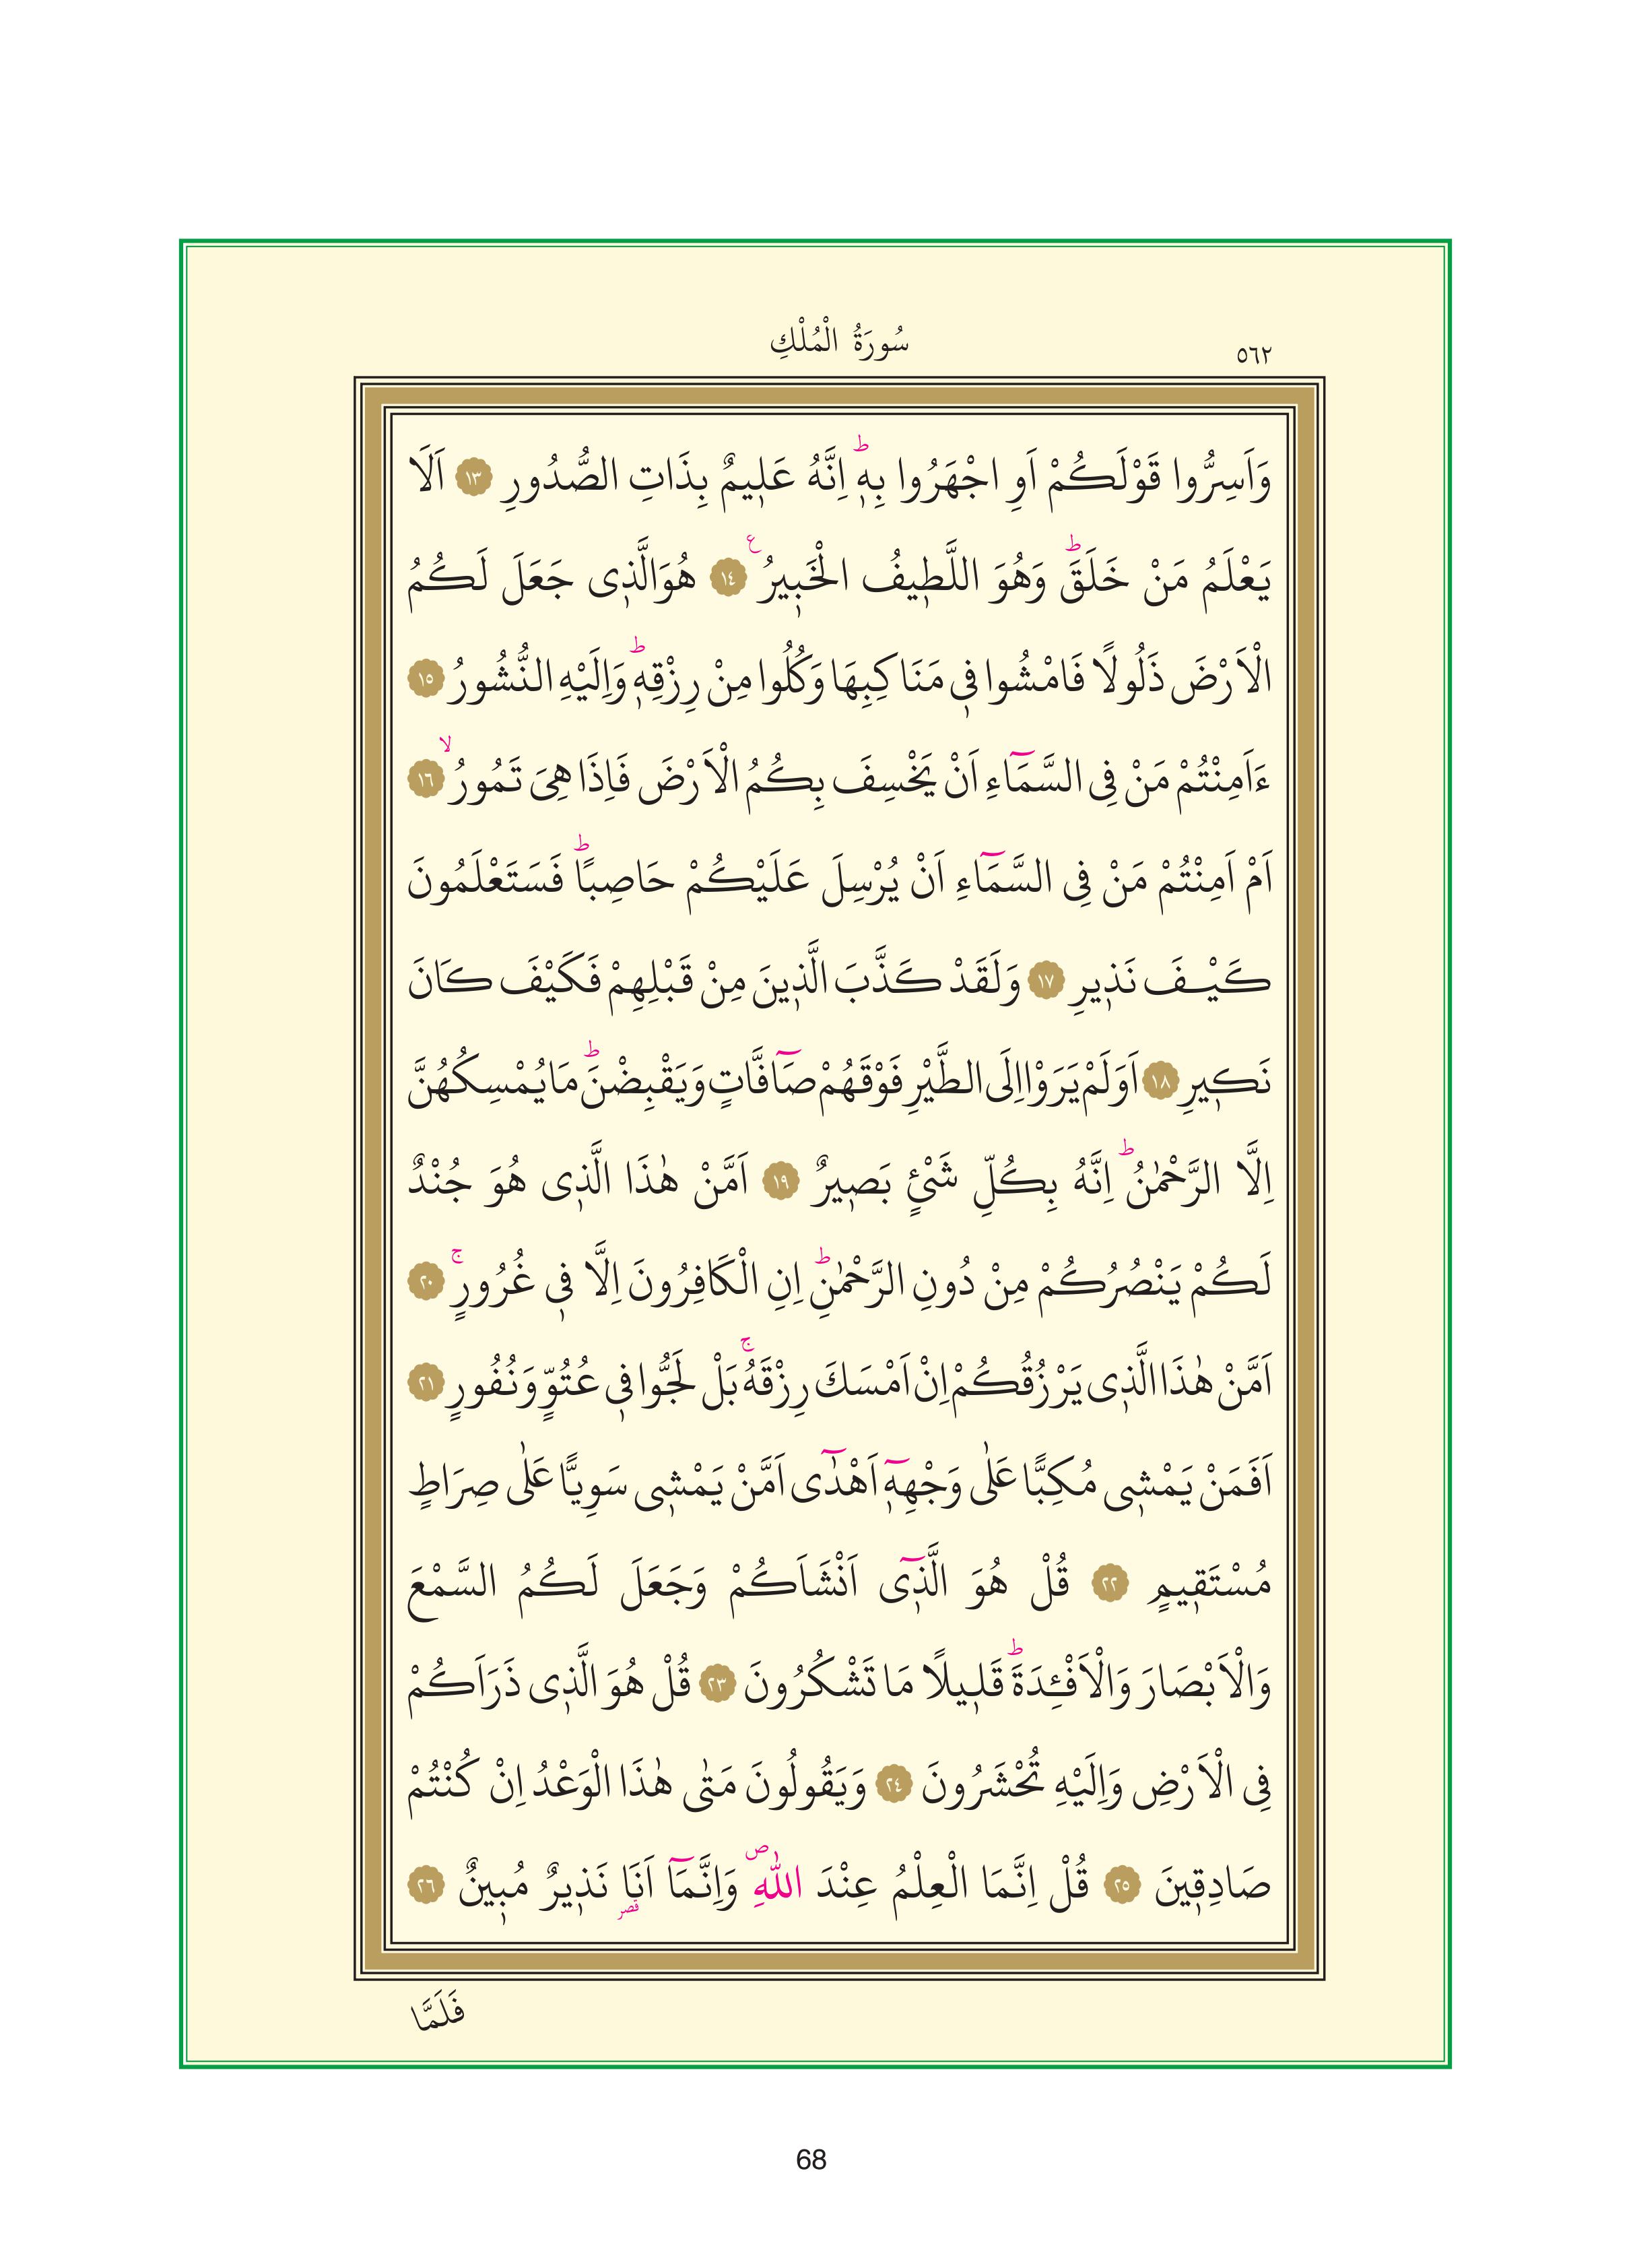 ٥٦٢
سُورَةُ الْمُلْكِ
وَاَسِرُّوا قَوْلَكُمْ اَوِ اجْهَرُوا بِهٖؕ اِنَّهُ عَلٖيمٌ بِذَاتِ الصُّدُورِ ١٣ اَلَا
يَعْلَمُ مَنْ خَلَقَؕ وَهُوَ اللَّطٖيفُ الْخَبٖيرُ ع ١٤ هُوَالَّذٖى جَعَلَ لَكُمُ
الْاَرْضَ ذَلُولًا فَامْشُوا فٖى مَنَاكِبِهَا وَكُلُوا مِنْ رِزْقِهٖؕ وَاِلَيْهِ النُّشُورُ ١٥
ءَاَمِنْتُمْ مَنْ فِى السَّمَٓاءِ اَنْ يَخْسِفَ بِكُمُ الْاَرْضَ فَاِذَا هِىَ تَمُورُۙ ١٦
اَمْ اَمِنْتُمْ مَنْ فِى السَّمَٓاءِ اَنْ يُرْسِلَ عَلَيْكُمْ حَاصِبًاؕ فَسَتَعْلَمُونَ
كَيْفَ نَذٖيرِ ١٧ وَلَقَدْ كَذَّبَ الَّذٖينَ مِنْ قَبْلِهِمْ فَكَيْفَ كَانَ
نَكٖيرِ ١٨ اَوَلَمْ يَرَوْا اِلَى الطَّيْرِ فَوْقَهُمْ صَٓافَّاتٍ وَيَقْبِضْنَؕ مَا يُمْسِكُهُنَّ
اِلَّا الرَّحْمٰنُؕ اِنَّهُ بِكُلِّ شَىْءٍ بَصٖيرٌ ١٩ اَمَّنْ هٰذَا الَّذٖى هُوَ جُنْدٌ
لَكُمْ يَنْصُرُكُمْ مِنْ دُونِ الرَّحْمٰنِؕ اِنِ الْكَافِرُونَ اِلَّا فٖى غُرُورٍۚ ٢٠
اَمَّنْ هٰذَا الَّذٖى يَرْزُقُكُمْ اِنْ اَمْسَكَ رِزْقَهُۚ بَلْ لَجُّوا فٖى عُتُوٍّ وَنُفُورٍ ٢١
اَفَمَنْ يَمْشٖى مُكِبًّا عَلٰى وَجْهِهٖٓ اَهْدٰٓى اَمَّنْ يَمْشٖى سَوِيًّا عَلٰى صِرَاطٍ
مُسْتَقٖيمٍ ٢٢ قُلْ هُوَ الَّذٖٓى اَنْشَاَكُمْ وَجَعَلَ لَكُمُ السَّمْعَ
وَالْاَبْصَارَ وَالْاَفْـِٔدَةَؕ قَلٖيلًا مَا تَشْكُرُونَ ٢٣ قُلْ هُوَ الَّذٖى ذَرَاَكُمْ
فِى الْاَرْضِ وَاِلَيْهِ تُحْشَرُونَ ٢٤ وَيَقُولُونَ مَتٰى هٰذَا الْوَعْدُ اِنْ كُنْتُمْ
صَادِقٖينَ ٢٥ قُلْ اِنَّمَا الْعِلْمُ عِنْدَ اللّٰهِ ص وَاِنَّمَٓا اَنَا قصر نَذٖيرٌ مُبٖينٌ ٢٦
فَلَمَّا
68